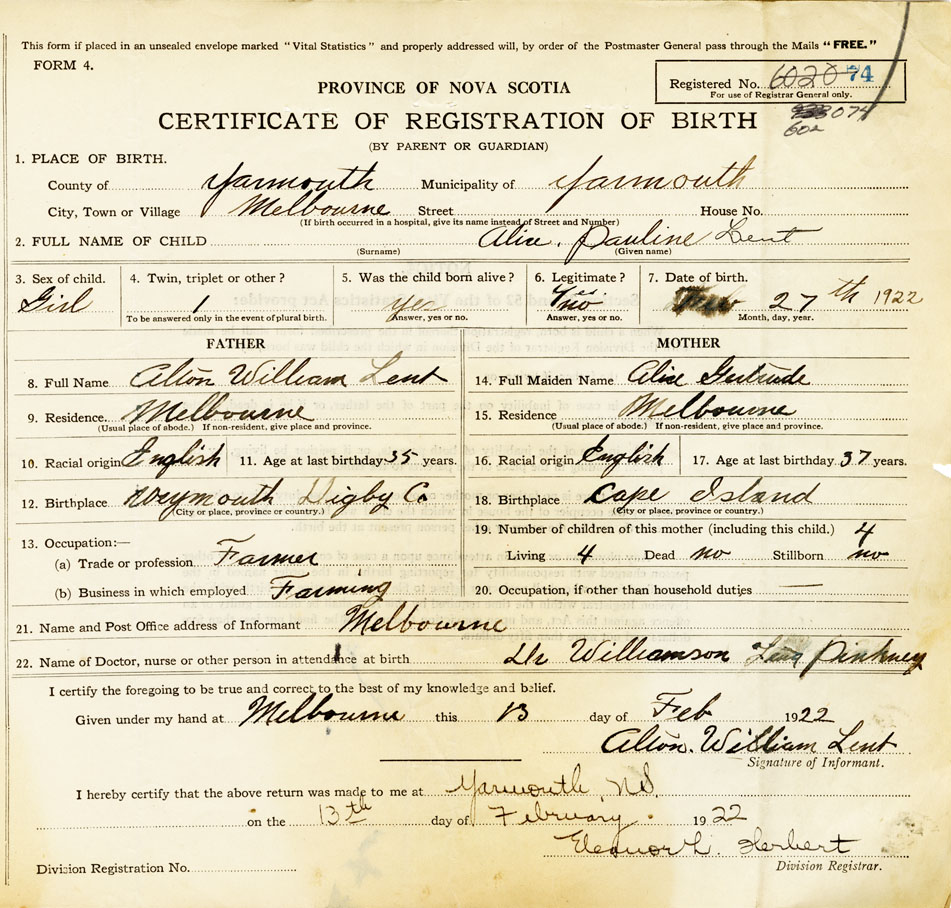 This form if placed in an unsealed envelope marked "Vital Statistics" and properly addressed will, by order of the Postmaster General pass through the Mails "FREE."
FORM 4.
Registered No. 6020 74
For use of Registrar General only.
074
602
PROVINCE OF NOVA SCOTIA
CERTIFICATE OF REGISTRATION OF BIRTH
(BY PARENT OR GUARDIAN)
1. PLACE OF BIRTH.
County of Yarmouth Municipality of Yarmouth
City, Town or Village Melbourne Street House No.
(If birth occurred in a hospital, give its name instead of Street and Number)
2. FULL NAME OF CHILD Alice. Pauline Lent
(Surname) (Given name)
3. Sex of child. 4. Twin, triplet or other? 5. Was the child born alive? 6. Legitimate? 7. Date of birth.
Girl 1 yes yes. no 27th 1922
To be answered only in the event of plural birth. Answer, yes or no. Answer, yes or no. Month, day, year.
FATHER MOTHER
8. Full Name Alton William Lent 14. Full Maiden Name Alice Gutrude
9. Residence. Melbourne 15. Residence Melbourne
(Usual place of abode.) If non-resident, give place and province. (Usual place of abode.) If non-resident, give place and province.
10. Racial origin English 11. Age at last birthday 35 years. 16. Racial origin English 17. Age at last birthday 37 years.
12. Birthplace Weymouth Digby Co 18. Birthplace Cape Island
(City or place, province or country.) (City or place, province or country.)
13. Occupation:— 19. Number of children of this mother (including this child.) 4
(a) Trade or profession Farmer Living 4 Dead no Stillborn no
(b) Business in which employed Farming 20. Occupation, if other than household duties —
21. Name and Post Office address of Informant Melbourne
22. Name of Doctor, nurse or other person in attendance at birth Dr Williamson Pinkney
I certify the foregoing to be true and correct to the best of my knowledge and belief.
Given under my hand at Melbourne this 13 day of Feb 1922
Alton. William Lent
Signature of Informant.
I hereby certify that the above return was made to me at Yarmouth, N.S.
on the 13th day of February. 1922
Eleanor L. Herbert
Division Registration No. Division Registrar.